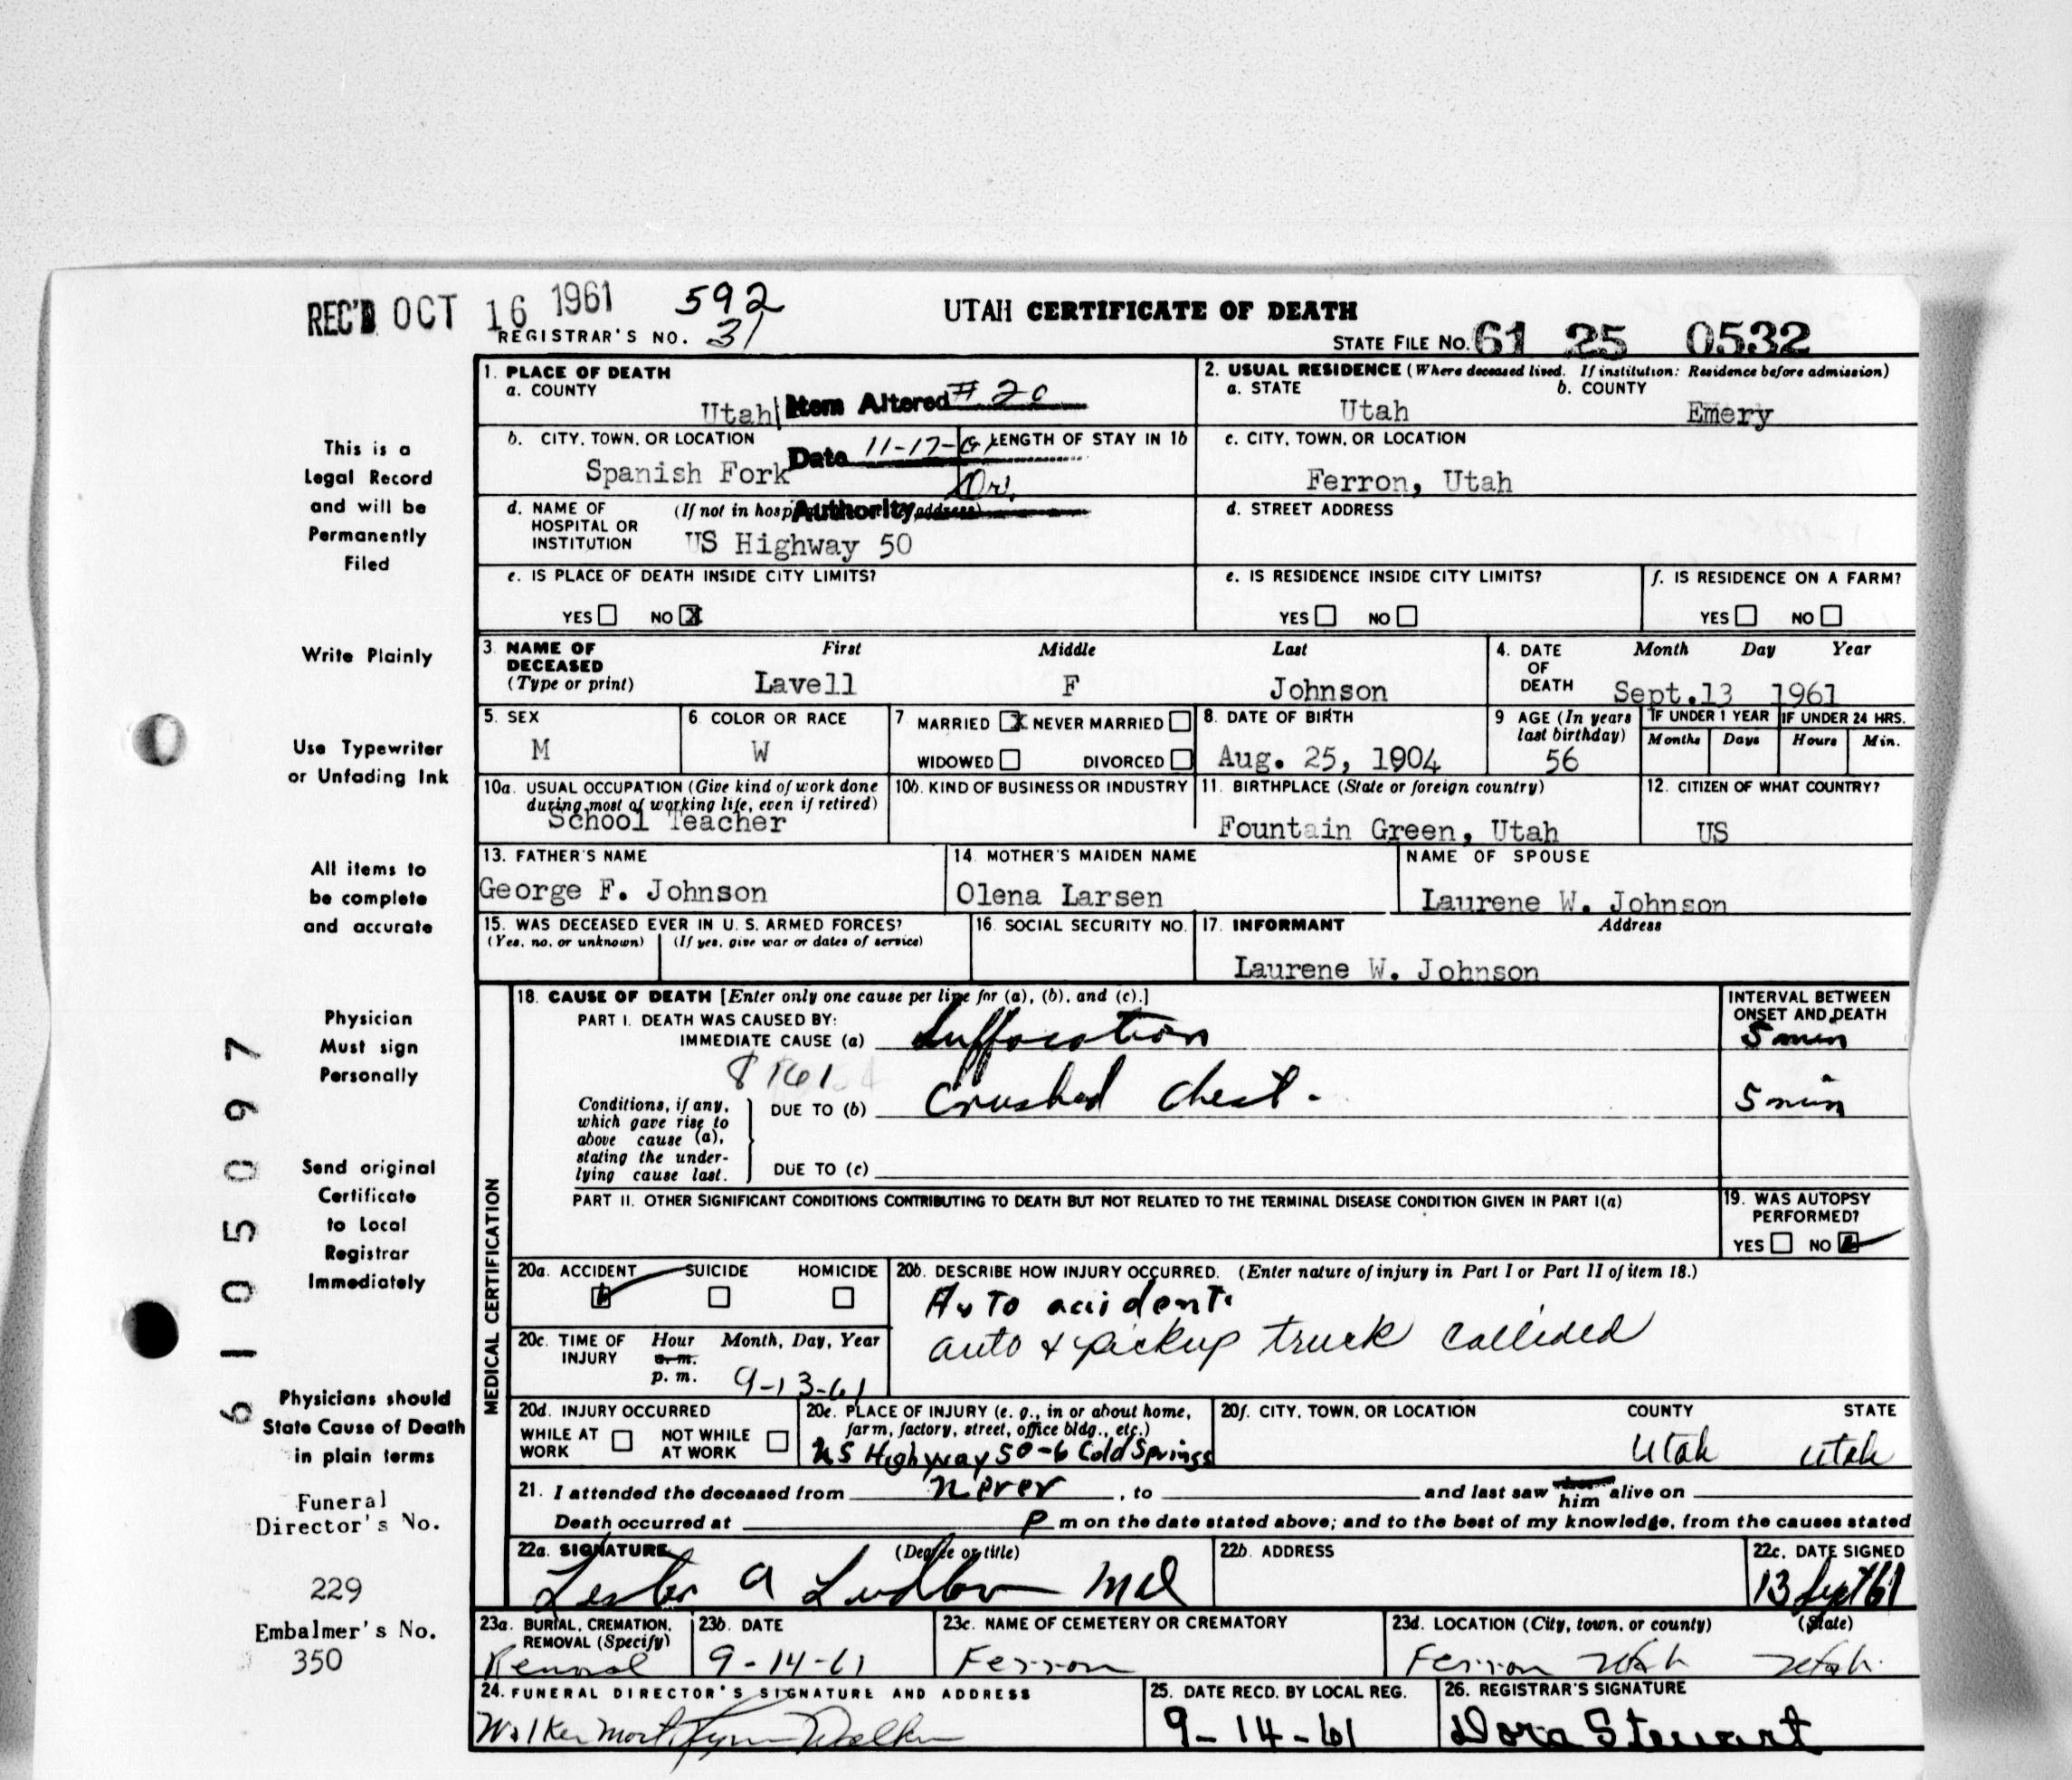 REC'D OCT 16 1961 592
REGISTRAR'S NO. 31
UTAH CERTIFICATE OF DEATH
STATE FILE NO. 61 25 0532
1. PLACE OF DEATH
a. COUNTY
Utah
Item Altered #20
2. USUAL RESIDENCE (Where deceased lived. If institution: Residence before admission)
a. STATE b. COUNTY
Utah Emery
b. CITY, TOWN, OR LOCATION
Spanish Fork
Date 11-17-61
LENGTH OF STAY IN 1b
c. CITY, TOWN, OR LOCATION
Ferron, Utah
d. NAME OF HOSPITAL OR INSTITUTION
(If not in hosp address)
Authority
US Highway 50
d. STREET ADDRESS
e. IS PLACE OF DEATH INSIDE CITY LIMITS?
YES NO X
e. IS RESIDENCE INSIDE CITY LIMITS?
YES NO
f. IS RESIDENCE ON A FARM?
YES NO
3. NAME OF DECEASED (Type or print)
First Middle Last
Lavell F Johnson
4. DATE OF DEATH
Month Day Year
Sept.13 1961
5. SEX
M
6. COLOR OR RACE
W
7 MARRIED X NEVER MARRIED
WIDOWED DIVORCED
8. DATE OF BIRTH
Aug. 25, 1904
9 AGE (In years last birthday)
56
IF UNDER 1 YEAR IF UNDER 24 HRS.
Months Days Hours Min.
10a. USUAL OCCUPATION (Give kind of work done during most of working life, even if retired)
School Teacher
10b. KIND OF BUSINESS OR INDUSTRY
11. BIRTHPLACE (State or foreign country)
Fountain Green, Utah
12. CITIZEN OF WHAT COUNTRY?
US
13. FATHER'S NAME
George F. Johnson
14. MOTHER'S MAIDEN NAME
Olena Larsen
NAME OF SPOUSE
Laurene W. Johnson
15. WAS DECEASED EVER IN U. S. ARMED FORCES?
(Yes, no, or unknown) (If yes, give war or dates of service)
16. SOCIAL SECURITY NO.
17. INFORMANT Address
Laurene W. Johnson
MEDICAL CERTIFICATION
18. CAUSE OF DEATH [Enter only one cause per line for (a), (b), and (c).]
PART I. DEATH WAS CAUSED BY:
IMMEDIATE CAUSE (a) Suffocation
INTERVAL BETWEEN ONSET AND DEATH
5 min
8161
Conditions, if any, which gave rise to above cause (a), stating the underlying cause last.
DUE TO (b) Crushed Chest.
5 min
DUE TO (c)
PART II. OTHER SIGNIFICANT CONDITIONS CONTRIBUTING TO DEATH BUT NOT RELATED TO THE TERMINAL DISEASE CONDITION GIVEN IN PART I(a)
19. WAS AUTOPSY PERFORMED?
YES NO
20a. ACCIDENT SUICIDE HOMICIDE
20b. DESCRIBE HOW INJURY OCCURRED. (Enter nature of injury in Part I or Part II of item 18.)
Auto accident.
auto & pickup truck collided
20c. TIME OF INJURY
Hour Month, Day, Year
a. m.
p. m. 9-13-61
20d. INJURY OCCURRED
WHILE AT WORK NOT WHILE AT WORK
20e. PLACE OF INJURY (e. g., in or about home, farm, factory, street, office bldg., etc.)
US Highway 50-6 Cold Springs
20f. CITY, TOWN, OR LOCATION COUNTY STATE
Utah Utah
21. I attended the deceased from never, to and last saw him alive on
Death occurred at P m on the date stated above; and to the best of my knowledge, from the causes stated
22a. SIGNATURE (Degree or title)
Lester A Ludlow MD
22b. ADDRESS
22c. DATE SIGNED
13 Sept 61
23a. BURIAL, CREMATION, REMOVAL (Specify)
Removal
23b. DATE
9-14-61
23c. NAME OF CEMETERY OR CREMATORY
Ferron
23d. LOCATION (City, town, or county) (State)
Ferron Utah Utah.
24. FUNERAL DIRECTOR'S SIGNATURE AND ADDRESS
Walker Mort.
25. DATE RECD. BY LOCAL REG.
9-14-61
26. REGISTRAR'S SIGNATURE
Dora Stewart
This is a
Legal Record
and will be
Permanently
Filed
Write Plainly
Use Typewriter
or Unfading Ink
All items to
be complete
and accurate
Physician
Must sign
Personally
Send original
Certificate
to Local
Registrar
Immediately
Physicians should
State Cause of Death
in plain terms
Funeral
Director's No.
229
Embalmer's No.
350
6105097